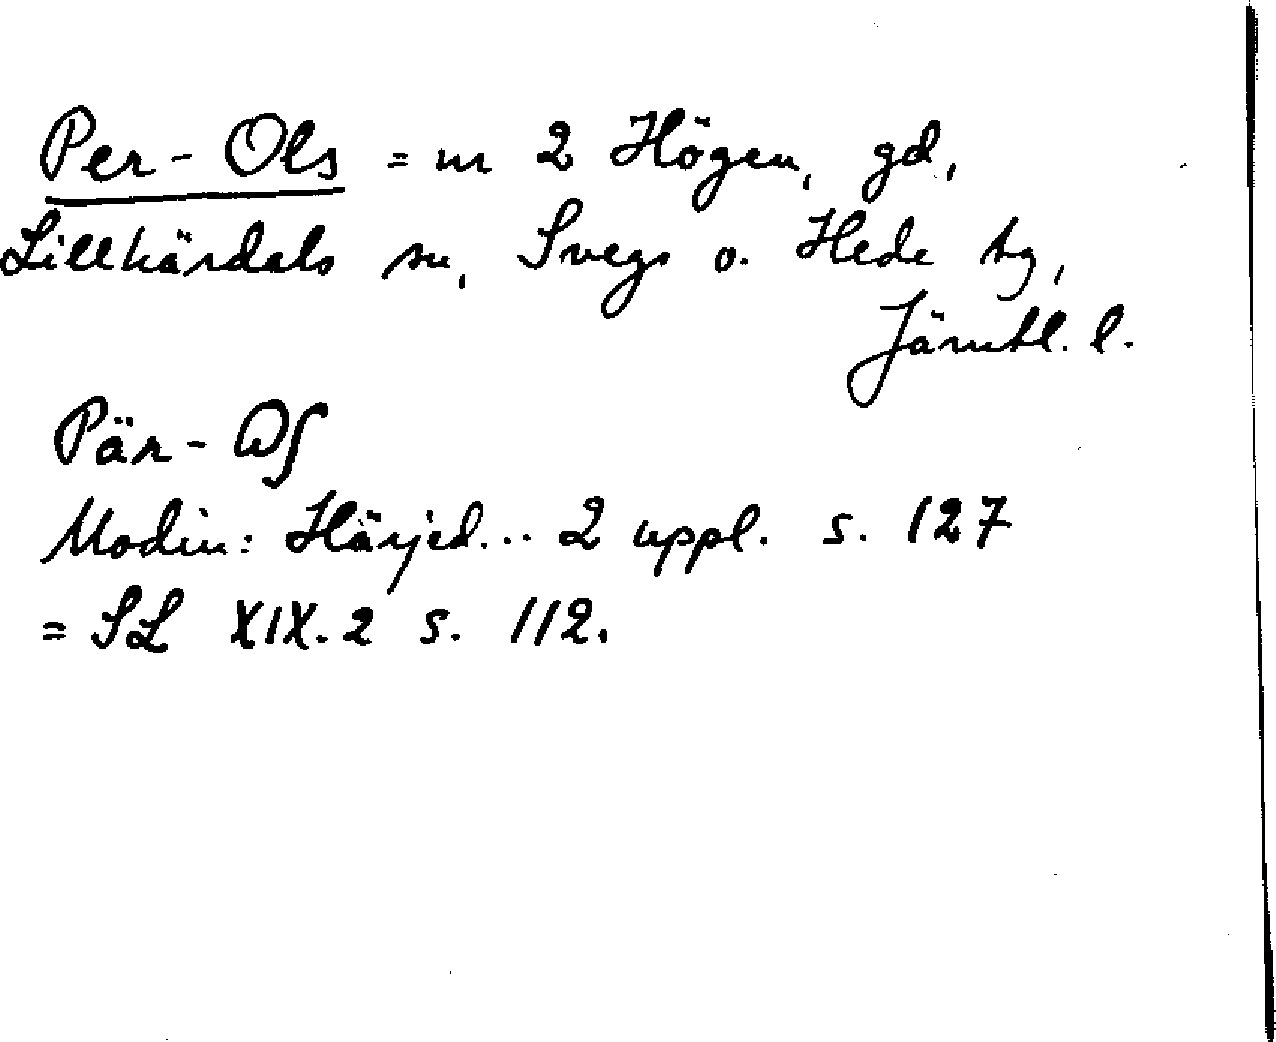 Per-Ols = m 2 Högen, gd,
Lillhärdals sn, Svegs o. Hede tg,
Jämtl. l.
Pär-
Modin: Härjed... 2 uppl. s. 127
= SL XIX.2 s. 112.